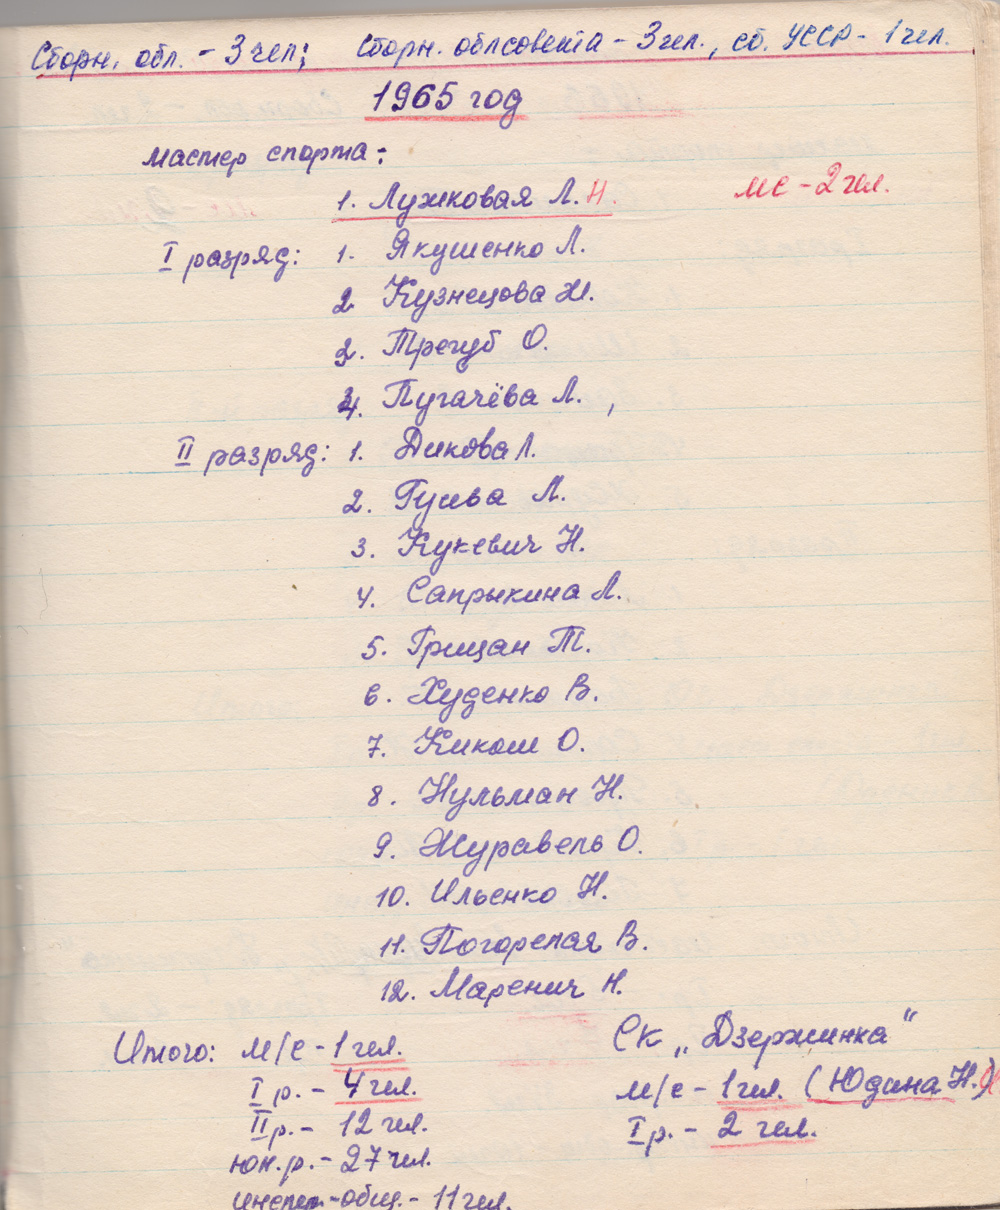 Сборн. обл. - 3 чел; Сборн. облсовета - 3 чел., сб. УССР - 1 чел.
1965 год
Мастер спорта:
1. Лужковая Л. Н. МС - 2 чел.
I разряд: 1. Якушенко Л.
2. Кузнецова Н.
3. Трегуб О.
4. Пугачёва Л.,
II разряд: 1. Дикова Л.
2. Гуева Л.
3. Кукевич Н.
4. Сапрыкина Л.
5. Грищан Т.
6. Худенко В.
7. Кикош О.
8. Нульман Н.
9. Журавель О.
10. Ильенко Н.
11. Погорелая В.
12. Маренич Н.
Итого: м/с - 1 чел.
I р. - 4 чел.
II р. - 12 чел.
юн. р. - 27 чел.
-общ. - 11 чел.
СК „Дзержинка“
м/с - 1 чел. (Юдина Н.)
I р. - 2 чел.